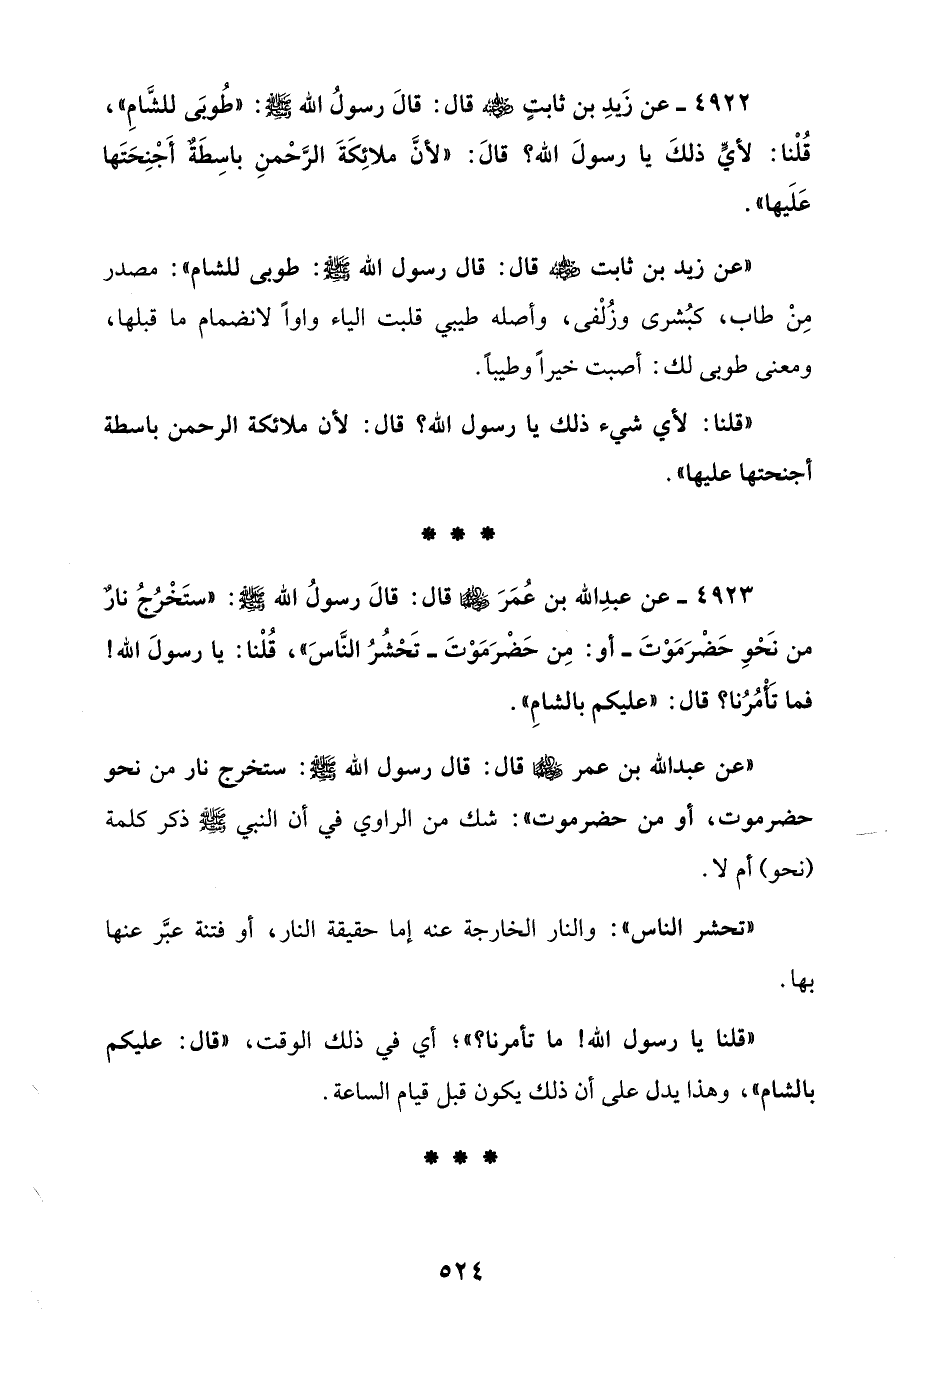 ٤٩٢٢ ـ عن زَيدِ بن ثابتٍ ﵁ قال: قالَ رسولُ الله ﷺ: «طُوبَى للشَّامِ»،
قُلْنا: لأيٍّ ذلكَ يا رسولَ الله؟ قالَ: «لأنَّ ملائِكَةَ الرَّحْمنِ باسِطَةٌ أَجْنِحَتَها
عَلَيها».
«عن زيد بن ثابت ﵁ قال: قال رسول الله ﷺ: طوبى للشام»: مصدر
مِنْ طاب، كبُشرى وزُلْفى، وأصله طيبي قلبت الياء واواً لانضمام ما قبلها،
ومعنى طوبى لك: أصبت خيراً وطيباً.
«قلنا: لأي شيء ذلك يا رسول الله؟ قال: لأن ملائكة الرحمن باسطة
أجنحتها عليها».
* * *
٤٩٢٣ ـ عن عبدِالله بن عُمَرَ ﵄ قال: قالَ رسولُ الله ﷺ: «ستَخْرُجُ نارٌ
من نَحْوِ حَضْرَمَوْتَ ـ أو: مِن حَضْرَمَوْتَ ـ تَحْشُرُ النَّاسَ»، قُلْنا: يا رسولَ الله!
فما تَأْمُرُنا؟ قال: «عليكم بالشامِ».
«عن عبدالله بن عمر ﵄ قال: قال رسول الله ﷺ: ستخرج نار من نحو
حضرموت، أو من حضرموت»: شك من الراوي في أن النبي ﷺ ذكر كلمة
(نحو) أم لا.
«تحشر الناس»: والنار الخارجة عنه إما حقيقة النار، أو فتنة عبَّر عنها
بها.
«قلنا يا رسول الله! ما تأمرنا؟»؛ أي في ذلك الوقت، «قال: عليكم
بالشام»، وهذا يدل على أن ذلك يكون قبل قيام الساعة.
* * *
٥٢٤